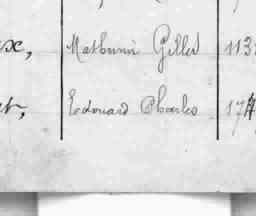 ux, Mathurin Gillet 113
et, Edouard Charles 17